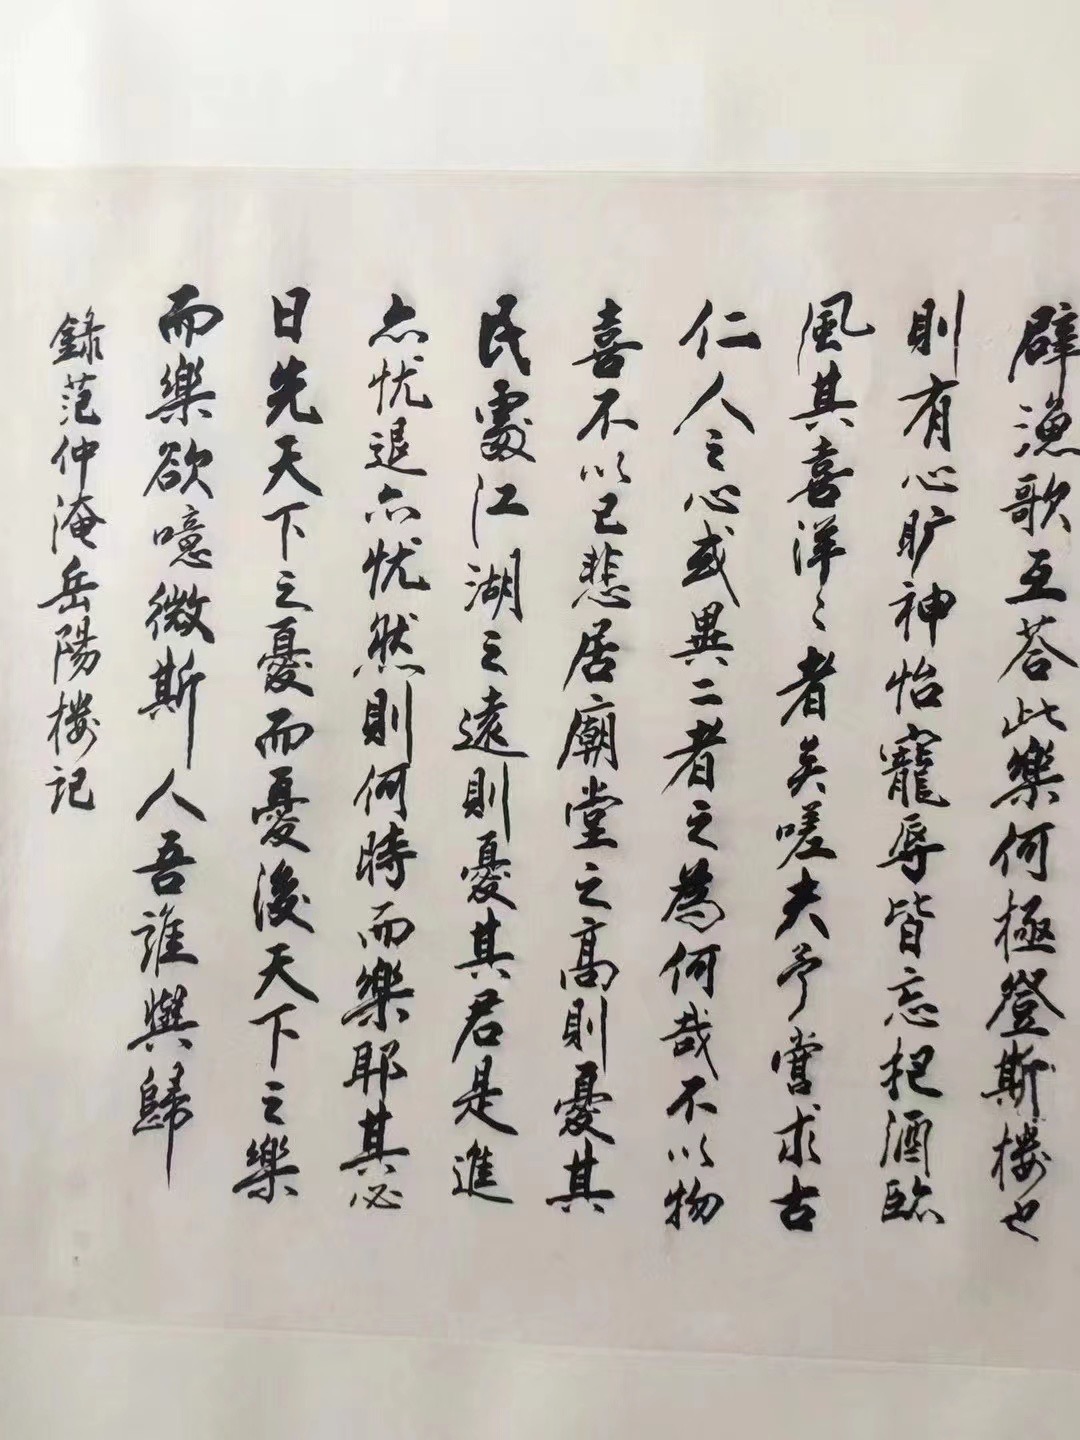 辟漁歌互荅此樂何極登斯楼也
則有心旷神怡寵辱皆忘把酒臨
風其喜洋〻者矣嗟夫予嘗求古
仁人之心或異二者之為何哉不以物
喜不以已悲居廟堂之高則憂其
民處江湖之遠則憂其君是進
亦忧退亦忧然則何時而樂耶其必
曰先天下之憂而憂後天下之樂
而樂欲噫微斯人吾誰與歸
錄范仲淹岳陽楼记